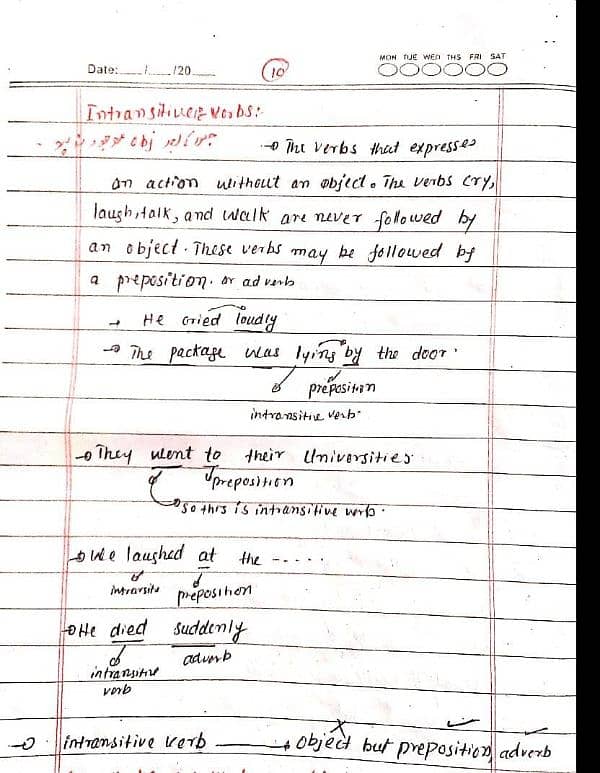 MON TUE WED THS FRI SAT
Date:___/___/20___
10
Intransitive verbs:
obj
→ The verbs that expresses
an action without an object. The verbs cry,
laugh, talk, and walk are never followed by
an object. These verbs may be followed by
a preposition. or adverb
→ He cried loudly
→ The package was lying by the door.
preposition
intransitive verb.
→ They went to their Universities.
preposition
so this is intransitive verb.
→ We laughed at the -....
intransitive preposition
→ He died suddenly
intransitive adverb
verb
→ intransitive verb → object but preposition, adverb